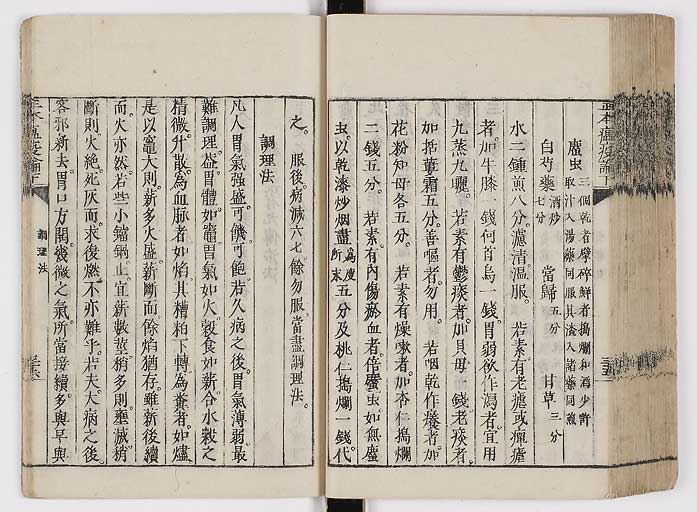 䗪虫三個乾者擘碎鮮者搗爛和酒少許
取汁入湯藥同服其渣入諸藥同煎
白芍藥酒炒七分 當歸五分 甘草三分
水二鍾煎八分濾清溫服。若素有老瘧或癉瘧
者。加牛膝一錢何首烏一錢。胃弱欲作瀉者。宜用
九蒸九曬。若素有鬱痰者。加貝母一錢。老痰者。
加括蔞霜五分。善嘔者。勿用。若咽乾作癢者。加
花粉知母各五分。若素有燥嗽者。加杏仁搗爛
二錢五分。若素有內傷瘀血者。倍䗪虫。如無䗪
虫。以乾漆炒烟盡為度研末五分及桃仁搗爛一錢代
之。服後。病減六七。餘勿服。當盡調理法。
調理法
凡人胃氣強盛。可饑可飽。若久病之後。胃氣薄弱。最
難調理。蓋胃體如竈。胃氣如火。穀食如薪。合水穀之
精微。升散為血脉者如焰。其糟粕下轉為糞者。如燼。
是以竈大則薪多火盛。薪斷而餘焰猶存。雖薪後續
而火亦然。若些小鐺鍋。止宜薪數莖。稍多則壅滅。稍
斷則火絕。死灰而求後燃。不亦難乎。若夫大病之後。
客邪新去。胃口方開。幾微之氣。所當接續。多與早與
調理法